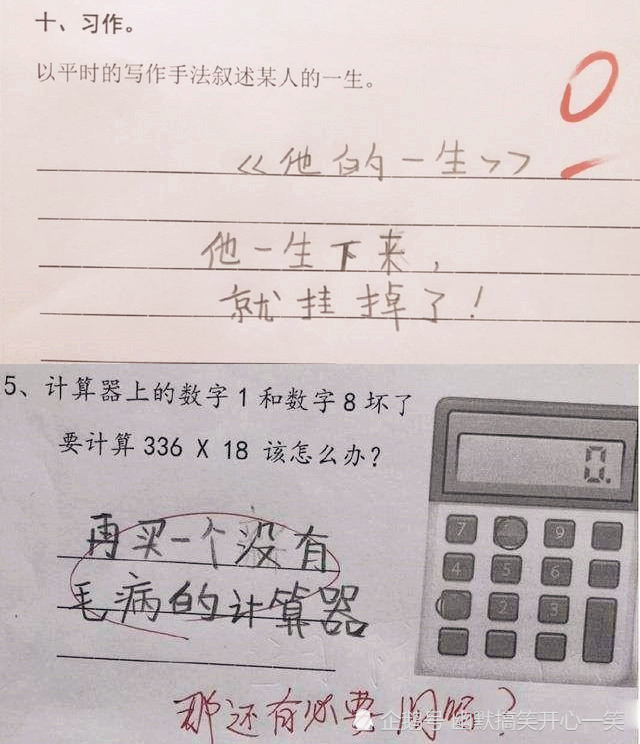 十、习作。
以平时的写作手法叙述某人的一生。
0
《他的一生》
他一生下来，
就挂掉了！
5、计算器上的数字1和数字8坏了
要计算336 X 18 该怎么办？
0.
7 9
4 5 6
2 3
再买一个没有
毛病的计算器
那还有必要问你？
企鹅号 幽默搞笑开心一笑